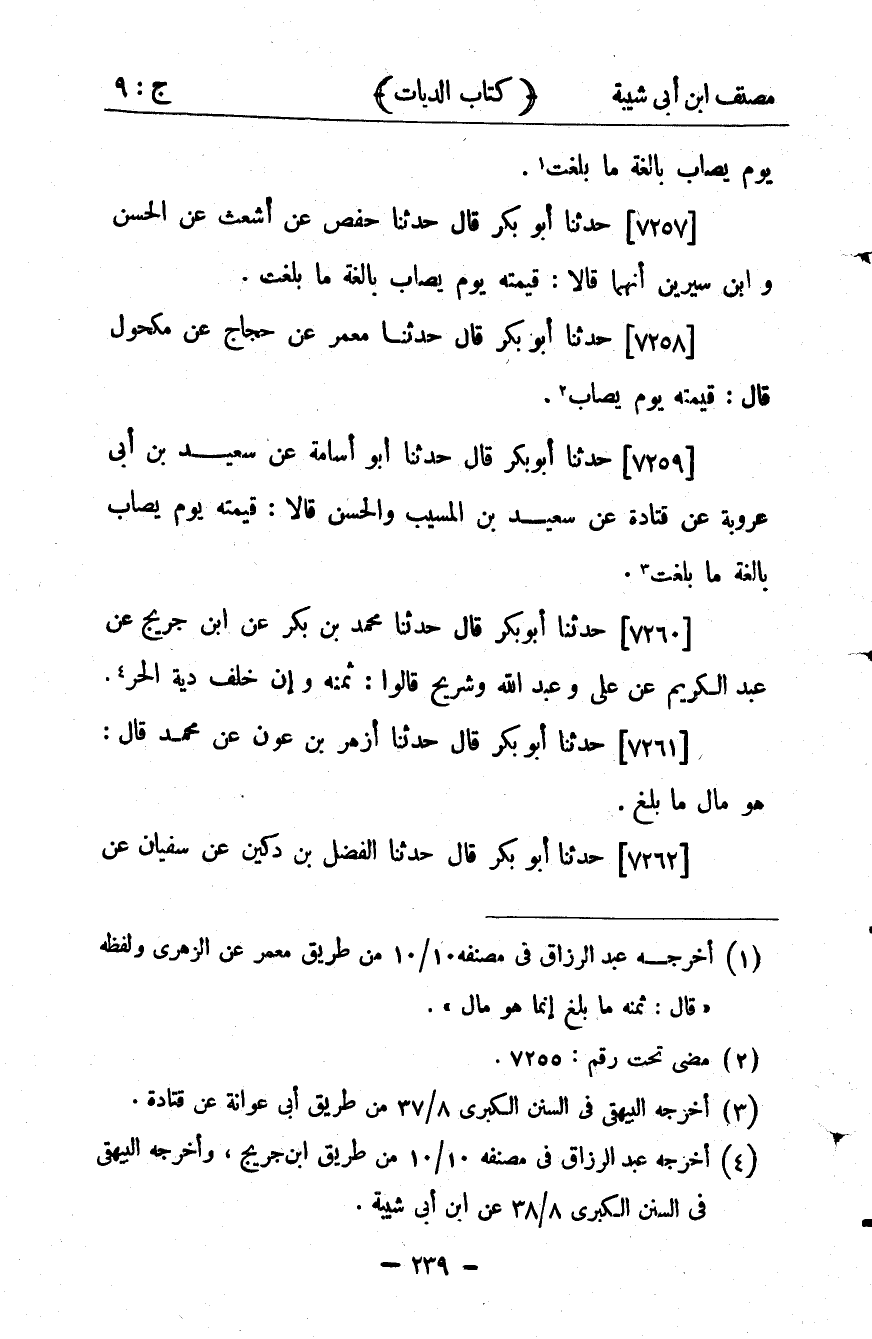 مصنف ابن أبى شيبة ﴿ كتاب الديات ﴾ ج : ٩
يوم يصاب بالغة ما بلغت١ .
[٧٢٥٧] حدثنا أبو بكر قال حدثنا حفص عن أشعث عن الحسن
و ابن سيرين أنهما قالا : قيمته يوم يصاب بالغة ما بلغت .
[٧٢٥٨] حدثنا أبو بكر قال حدثنـا معمر عن حجاج عن مكحول
قال : قيمته يوم يصاب٢ .
[٧٢٥٩] حدثنا أبوبكر قال حدثنا أبو أسامة عن سعيـــد بن أبى
عروبة عن قتادة عن سعيـــد بن المسيب والحسن قالا : قيمته يوم يصاب
بالغة ما بلغت٣ .
[٧٢٦٠] حدثنا أبوبكر قال حدثنا محمد بن بكر عن ابن جريج عن
عبد الـكريم عن على و عبد الله وشريح قالوا : ثمنه و إن خلف دية الحر٤ .
[٧٢٦١] حدثنا أبو بكر قال حدثنا أزهر بن عون عن محمـد قال :
هو مال ما بلغ .
[٧٢٦٢] حدثنا أبو بكر قال حدثنا الفضل بن دكين عن سفيان عن
(١) أخرجـــه عبد الرزاق فى مصنفه ١٠/١٠ من طريق معمر عن الزهرى ولفظه
« قال : ثمنه ما بلغ إنما هو مال » .
(٢) مضى تحت رقم : ٧٢٥٥ .
(٣) أخرجه البيهقى فى السنن الـكبرى ٣٧/٨ من طريق أبى عوانة عن قتادة .
(٤) أخرجه عبد الرزاق فى مصنفه ١٠/١٠ من طريق ابن جريج ، وأخرجه البيهقى
فى السنن الـكبرى ٣٨/٨ عن ابن أبى شيبة .
– ٢٣٩ –